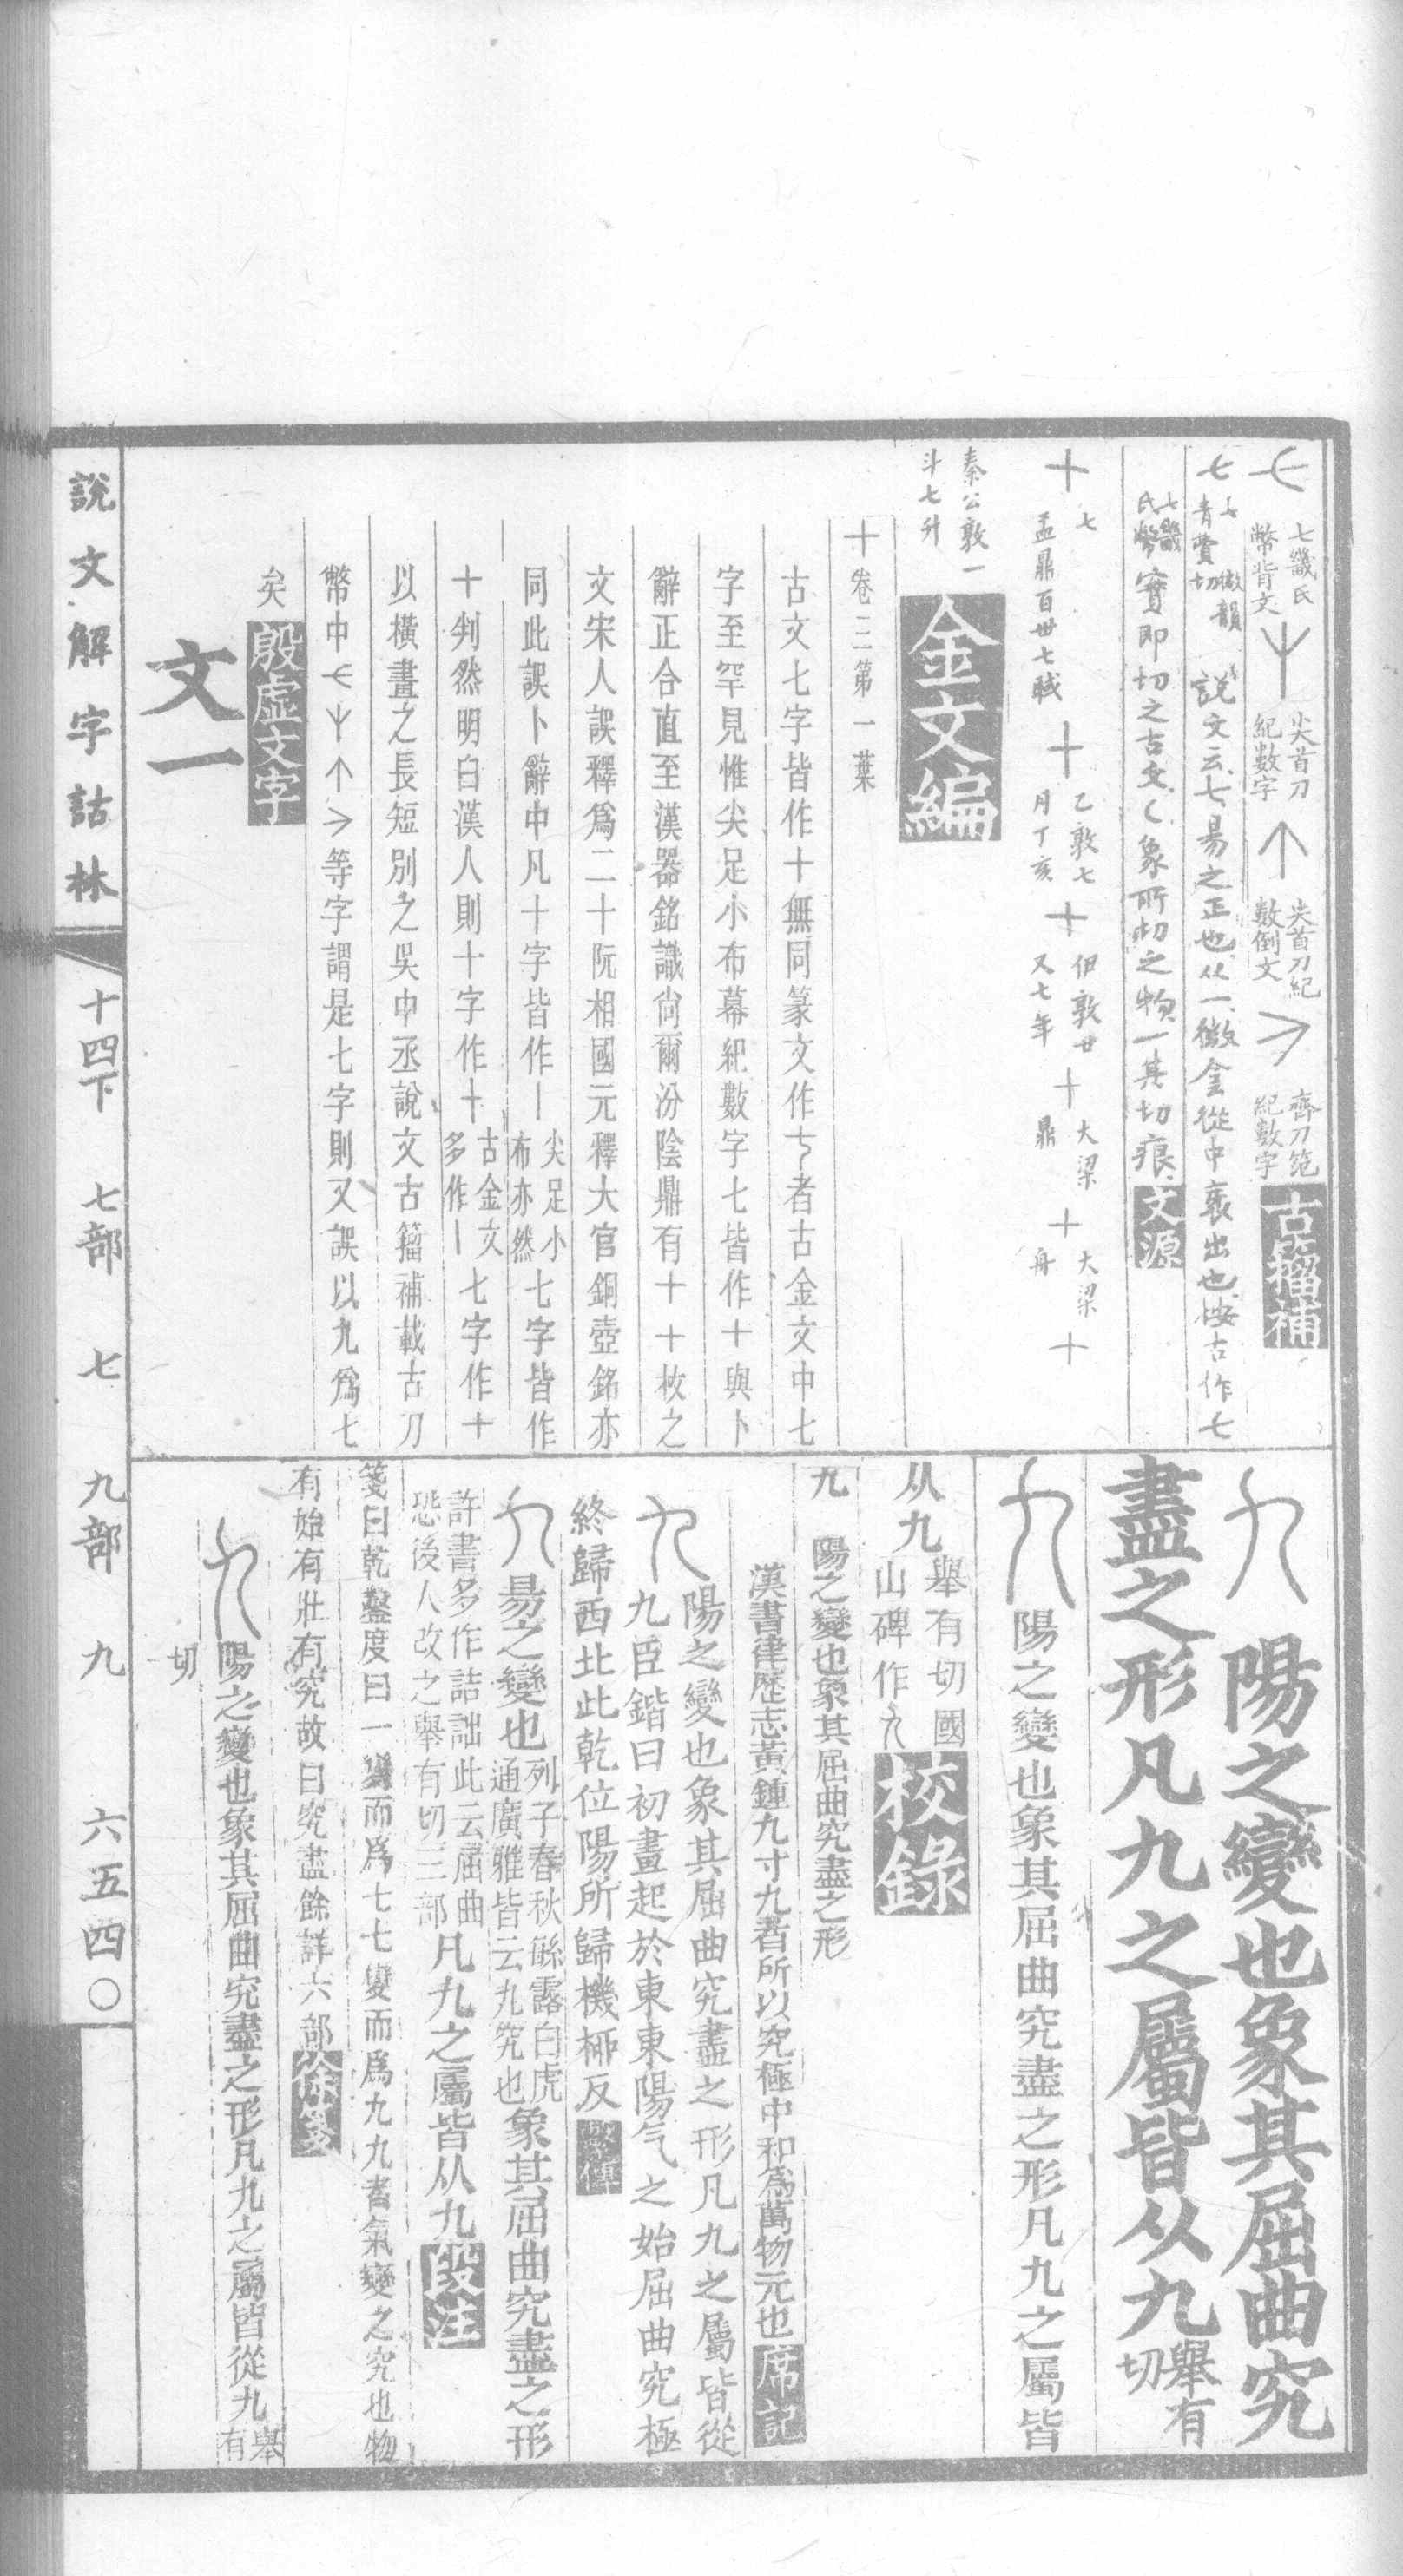 七幾氏幣背文
尖首刀紀數字
尖首刀紀數倒文
齊刀笵紀數字 古籀補
七 七青質切 微韻 說文云七昜之正也从一微侌從中衺出也按古作七
七幾氏幣 實即切之古文乀象所切之物一其切痕 文源
十 七 盂鼎百卅七聝 十 乙敦七月丁亥 十 伊敦廿又七年 十 大梁鼎 十 大梁 十
秦公敦一斗七升 金文編
十 卷二第一葉
古文七字皆作十無同篆文作七者古金文中七
字至罕見惟尖足小布幕紀數字七皆作十與卜
辭正合直至漢器銘識尙爾汾陰鼎有十十枚之
文宋人誤釋爲二十阮相國元釋大官銅壺銘亦
同此誤卜辭中凡十字皆作丨尖足小布亦然七字皆作
十判然明白漢人則十字作十古金文多作丨七字作十
以橫畫之長短別之吳中丞說文古籀補載古刀
幣中等字謂是七字則又誤以九爲七
矣 殷虛文字
文一
九 陽之變也象其屈曲究
盡之形凡九之屬皆从九 舉有切
九 陽之變也象其屈曲究盡之形凡九之屬皆
从九 舉有切國山碑作九 校錄
九 陽之變也象其屈曲究盡之形
漢書律歷志黃鍾九寸九者所以究極中和爲萬物元也 席記
九 陽之變也象其屈曲究盡之形凡九之屬皆從
九臣鍇曰初畫起於東東陽气之始屈曲究極
終歸西北此乾位陽所歸機柳反 繫傳
九 昜之變也 列子春秋繇露白虎通廣雅皆云九究也 象其屈曲究盡之形
許書多作詰詘此云屈曲恐後人改之舉有切三部 凡九之屬皆从九 段注
箋曰乾鑿度曰一變而爲七七變而爲九九者氣變之究也物
有始有壯有究故曰究盡餘詳六部 徐箋
九 陽之變也象其屈曲究盡之形凡九之屬皆從九 舉有
切
說文解字詁林 十四下 七部 七 九部 九 六五四〇